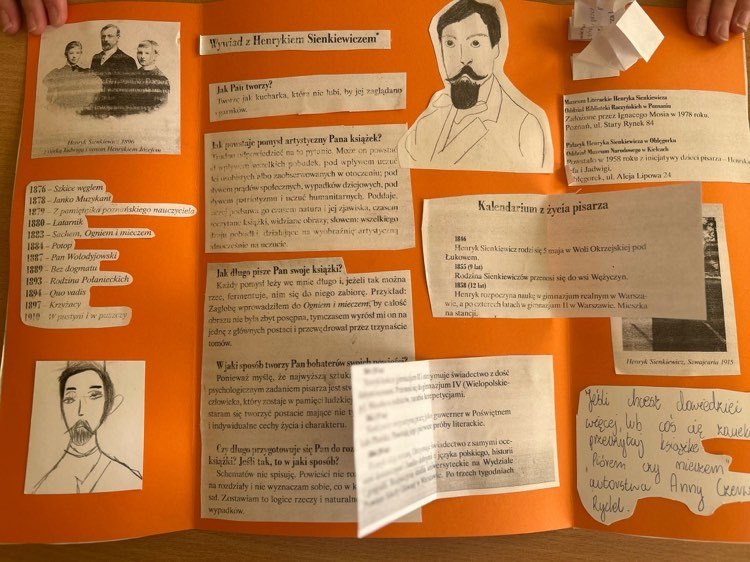 Henryk Sienkiewicz 1896
z córką Jadwigą i synem Henrykiem Józefem
1876 – Szkice węglem
1878 – Janko Muzykant
1879 – Z pamiętnika poznańskiego nauczyciela
1880 – Latarnik
1883 – Sachem, Ogniem i mieczem
1884 – Potop
1887 – Pan Wołodyjowski
1889 – Bez dogmatu
1893 – Rodzina Połanieckich
1894 – Quo vadis
1897 – Krzyżacy
1910 – W pustyni i w puszczy
Wywiad z Henrykiem Sienkiewiczem*
Jak Pan tworzy?
Tworzę jak kucharka, która nie lubi, by jej zaglądano
do garnków.
Jak powstaje pomysł artystyczny Pana książek?
Trudno odpowiedzieć na to pytanie. Może on powstać
pod wpływem wszelkich pobudek, pod wpływem uczuć
osobistych albo zaobserwowanych w otoczeniu; pod
wpływem prądów społecznych, wypadków dziejowych, pod
wpływem patriotyzmu i uczuć humanitarnych. Poddaje,
podsuwa go czasem natura i jej zjawiska, czasem
przeczytane książki, widziane obrazy, słowem: wszelkiego
rodzaju pobudki działające na wyobraźnię artystyczną
i jednocześnie na uczucie.
Jak długo pisze Pan swoje książki?
Każdy pomysł leży we mnie długo i, jeżeli tak można
rzec, fermentuje, nim się do niego zabiorę. Przykład:
Zagłobę wprowadziłem do Ogniem i mieczem, by całość
obrazu nie była zbyt posępna, tymczasem wyrósł mi on na
jedną z głównych postaci i przewędrował przez trzynaście
tomów.
W jaki sposób tworzy Pan bohaterów swoich powieści?
Ponieważ myślę, że najwyższą
psychologicznym zadaniem pisarza jest
człowieka, który zostaje w pamięci
staram się tworzyć postacie mające nie
i indywidualne cechy życia i charakteru.
Czy długo przygotowuje się Pan do
książki? Jeśli tak, to w jaki sposób?
Schematów nie spisuję. Powieści nie
na rozdziały i nie wyznaczam sobie, co w
Zostawiam to logice rzeczy i
wypadków.
Muzeum Literackie Henryka Sienkiewicza
Oddział Biblioteki Raczyńskich w Poznaniu
Założone przez Ignacego Mosia w 1978 roku.
Poznań, ul. Stary Rynek 84
Pałacyk Henryka Sienkiewicza w Oblęgorku
Oddział Muzeum Narodowego w Kielcach
Powstało w 1958 roku z inicjatywy dzieci pisarza – Henryka
i Jadwigi.
Oblęgorek, ul. Aleja Lipowa 24
Kalendarium z życia pisarza
1846
Henryk Sienkiewicz rodzi się 5 maja w Woli Okrzejskiej pod
Łukowem.
1855 (9 lat)
Rodzina Sienkiewiczów przenosi się do wsi Wężyczyn.
1858 (12 lat)
Henryk rozpoczyna naukę w gimnazjum realnym w Warsza-
wie, a po czterech latach w gimnazjum II w Warszawie. Mieszka
na stancji.
Henryk Sienkiewicz, Szwajcaria 1915
świadectwo z dość
gimnazjum IV (Wielopolskie-
korepetycjami.
guwerner w Poświętnem
próby literackie.
świadectwo z samymi oce-
języka polskiego, historii
uniwersyteckie na Wydziale
Po trzech tygodniach
Jeśli chcesz dowiedzieć
więcej, lub coś
przeczytaj książkę
"Piórem czy mieczem"
autorstwa Anny
Rydel.